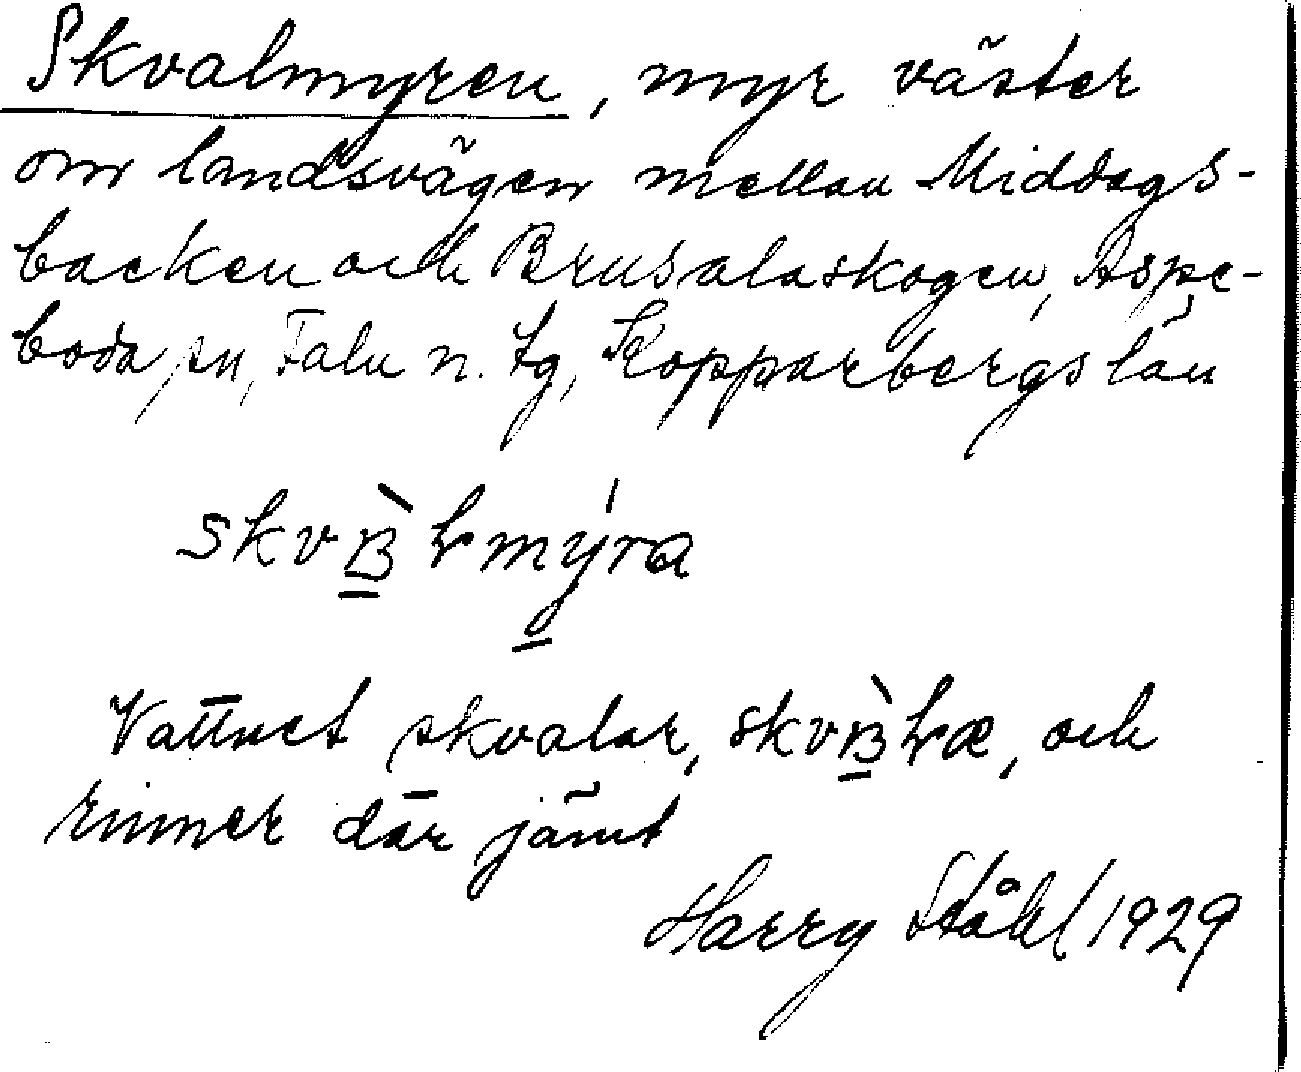 Skvalmyren, myr väster
om landsvägen mellan Middags-
backen och Brusalaskogen, Aspe-
boda sn, Falu n. tg, Kopparbergs län
Vattnet skvalar, och
rinner där jämt
Harry Ståhl 1929